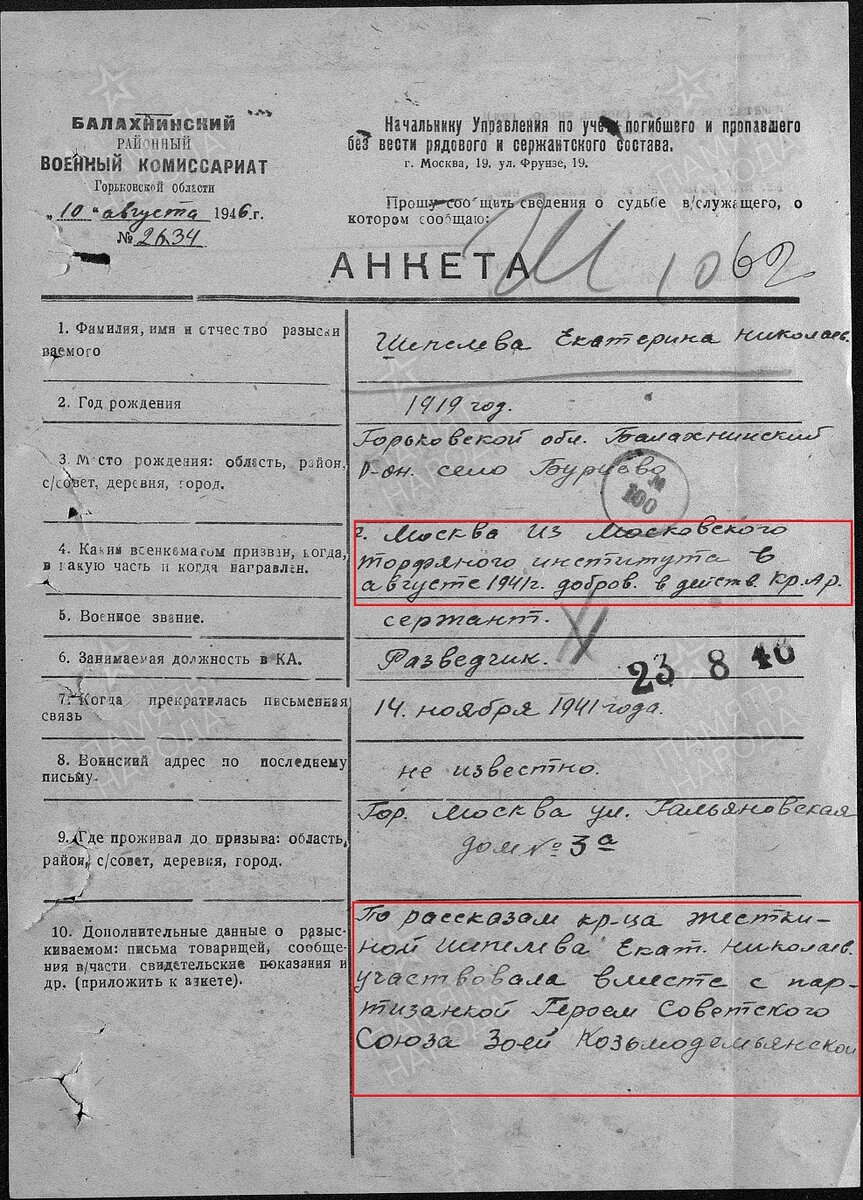 БАЛАХНИНСКИЙ
РАЙОННЫЙ
ВОЕННЫЙ КОМИССАРИАТ
Горьковской области
„10" августа 1946 г.
№ 2634
Начальнику Управления по учету погибшего и пропавшего
без вести рядового и сержантского состава.
г. Москва, 19, ул. Фрунзе, 19.
Прошу сообщить сведения о судьбе в/служащего, о
котором сообщаю:
АНКЕТА
Ш 1062
1. Фамилия, имя и отчество разыски
ваемого
Шипелева Екатерина Николаев.
2. Год рождения
1919 год.
3. Место рождения: область, район,
с/совет, деревня, город.
Горьковской обл. Балахнинский
р-он. село
№
100
4. Каким военкоматом призван, когда,
в какую часть и когда направлен.
г. Москва из Московского
торфяного института в
августе 1941 г. добров. в действ. Кр. Ар.
5. Военное звание.
сержант.
6. Занимаемая должность в КА.
Разведчик.
23 8 46
7. Когда прекратилась письменная
связь
14. ноября 1941 года.
8. Воинский адрес по последнему
письму.
не известно.
9. Где проживал до призыва: область,
район, с/совет, деревня, город.
Гор. Москва ул. Гальяновская
дом № 3а
10. Дополнительные данные о разыс-
киваемом: письма товарищей, сообще-
ния в/части свидетельские показания и
др. (приложить к анкете).
По рассказам кр-ца Жестки-
ной Шипелева Екат. Николаев.
участвовала вместе с пар-
тизанкой Героем Советского
Союза Зоей Козьмодемьянской
ПАМЯТЬ
НАРОДА